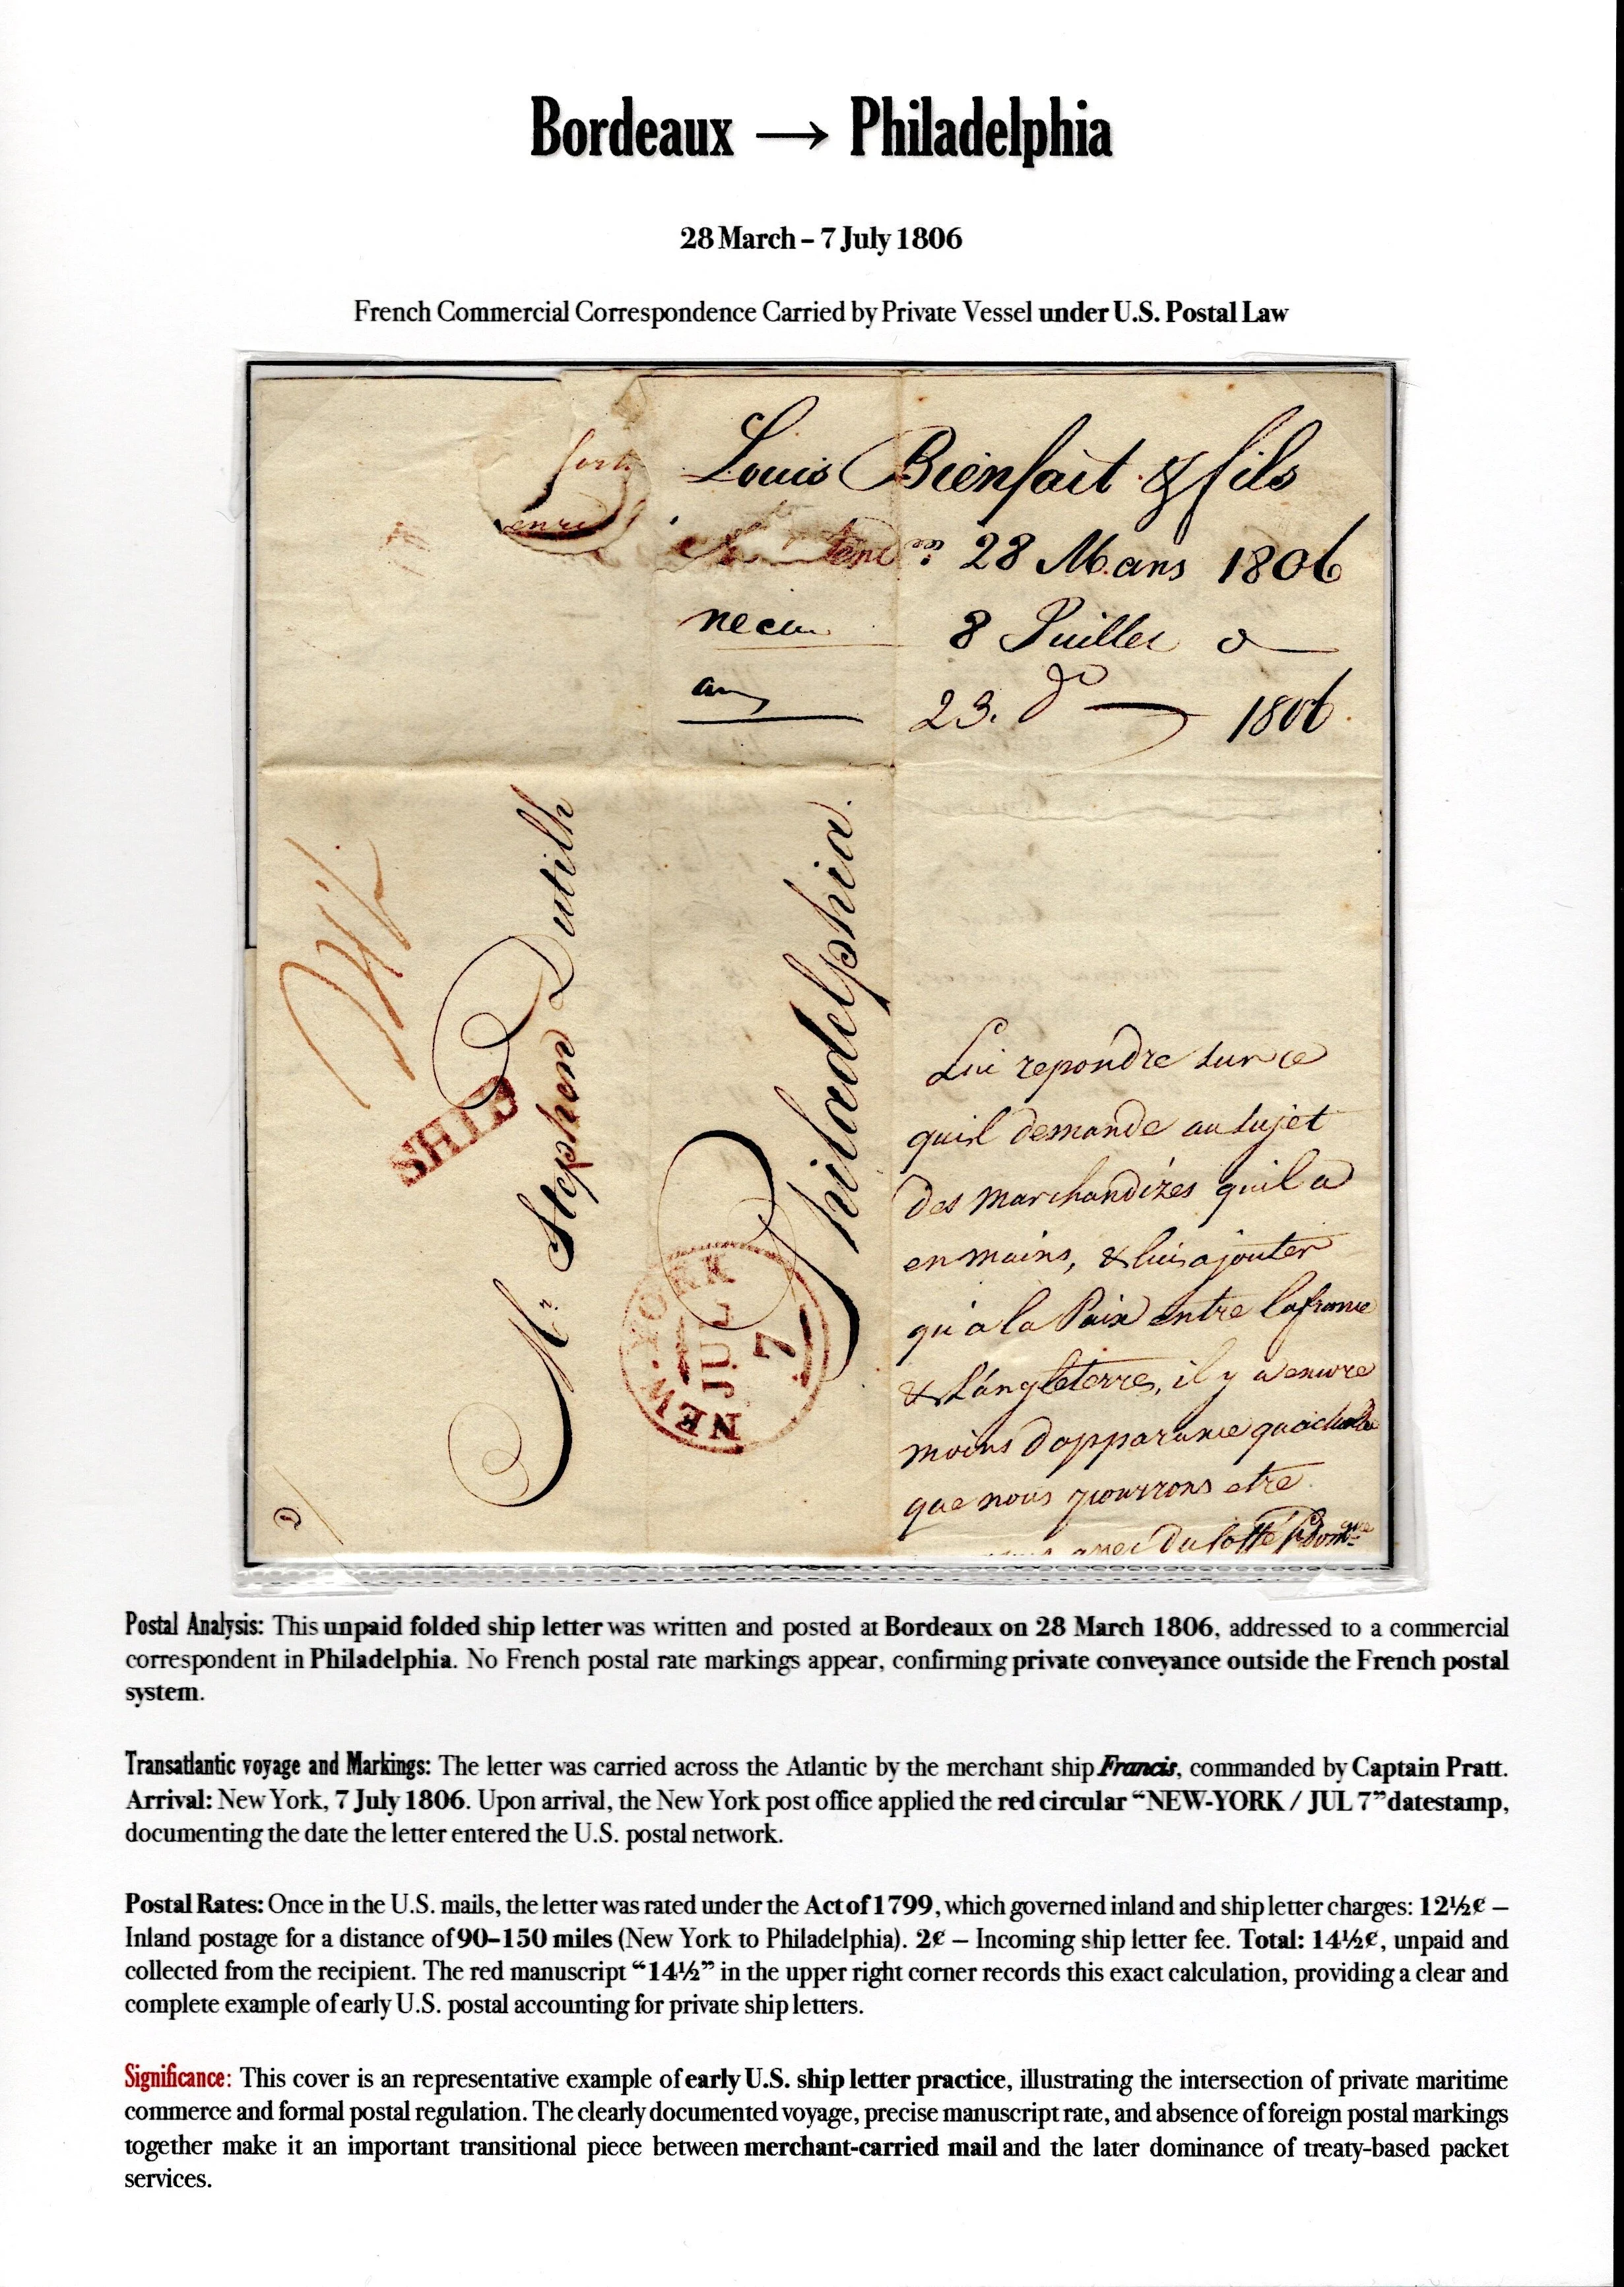 Bordeaux → Philadelphia
28 March – 7 July 1806
French Commercial Correspondence Carried by Private Vessel under U.S. Postal Law
Louis Bienfait & fils
28 Mars 1806
8 Juillet
23. do 1806
14½
SHIP
Mr Stephen Dutilh
Philadelphia.
NEW-YORK
JUL
7
Lui repondre sur ce
quil demande au sujet
des marchandizes quil a
en mains, & lui ajouter
qu'a la Paix entre la france
& L'angleterre, il y a encore
moins dapparance
que nous pourrons etre
avec du
Postal Analysis: This unpaid folded ship letter was written and posted at Bordeaux on 28 March 1806, addressed to a commercial
correspondent in Philadelphia. No French postal rate markings appear, confirming private conveyance outside the French postal
system.
Transatlantic voyage and Markings: The letter was carried across the Atlantic by the merchant ship Francis, commanded by Captain Pratt.
Arrival: New York, 7 July 1806. Upon arrival, the New York post office applied the red circular “NEW-YORK / JUL 7” datestamp,
documenting the date the letter entered the U.S. postal network.
Postal Rates: Once in the U.S. mails, the letter was rated under the Act of 1799, which governed inland and ship letter charges: 12½¢ –
Inland postage for a distance of 90–150 miles (New York to Philadelphia). 2¢ – Incoming ship letter fee. Total: 14½¢, unpaid and
collected from the recipient. The red manuscript “14½” in the upper right corner records this exact calculation, providing a clear and
complete example of early U.S. postal accounting for private ship letters.
Significance: This cover is an representative example of early U.S. ship letter practice, illustrating the intersection of private maritime
commerce and formal postal regulation. The clearly documented voyage, precise manuscript rate, and absence of foreign postal markings
together make it an important transitional piece between merchant-carried mail and the later dominance of treaty-based packet
services.